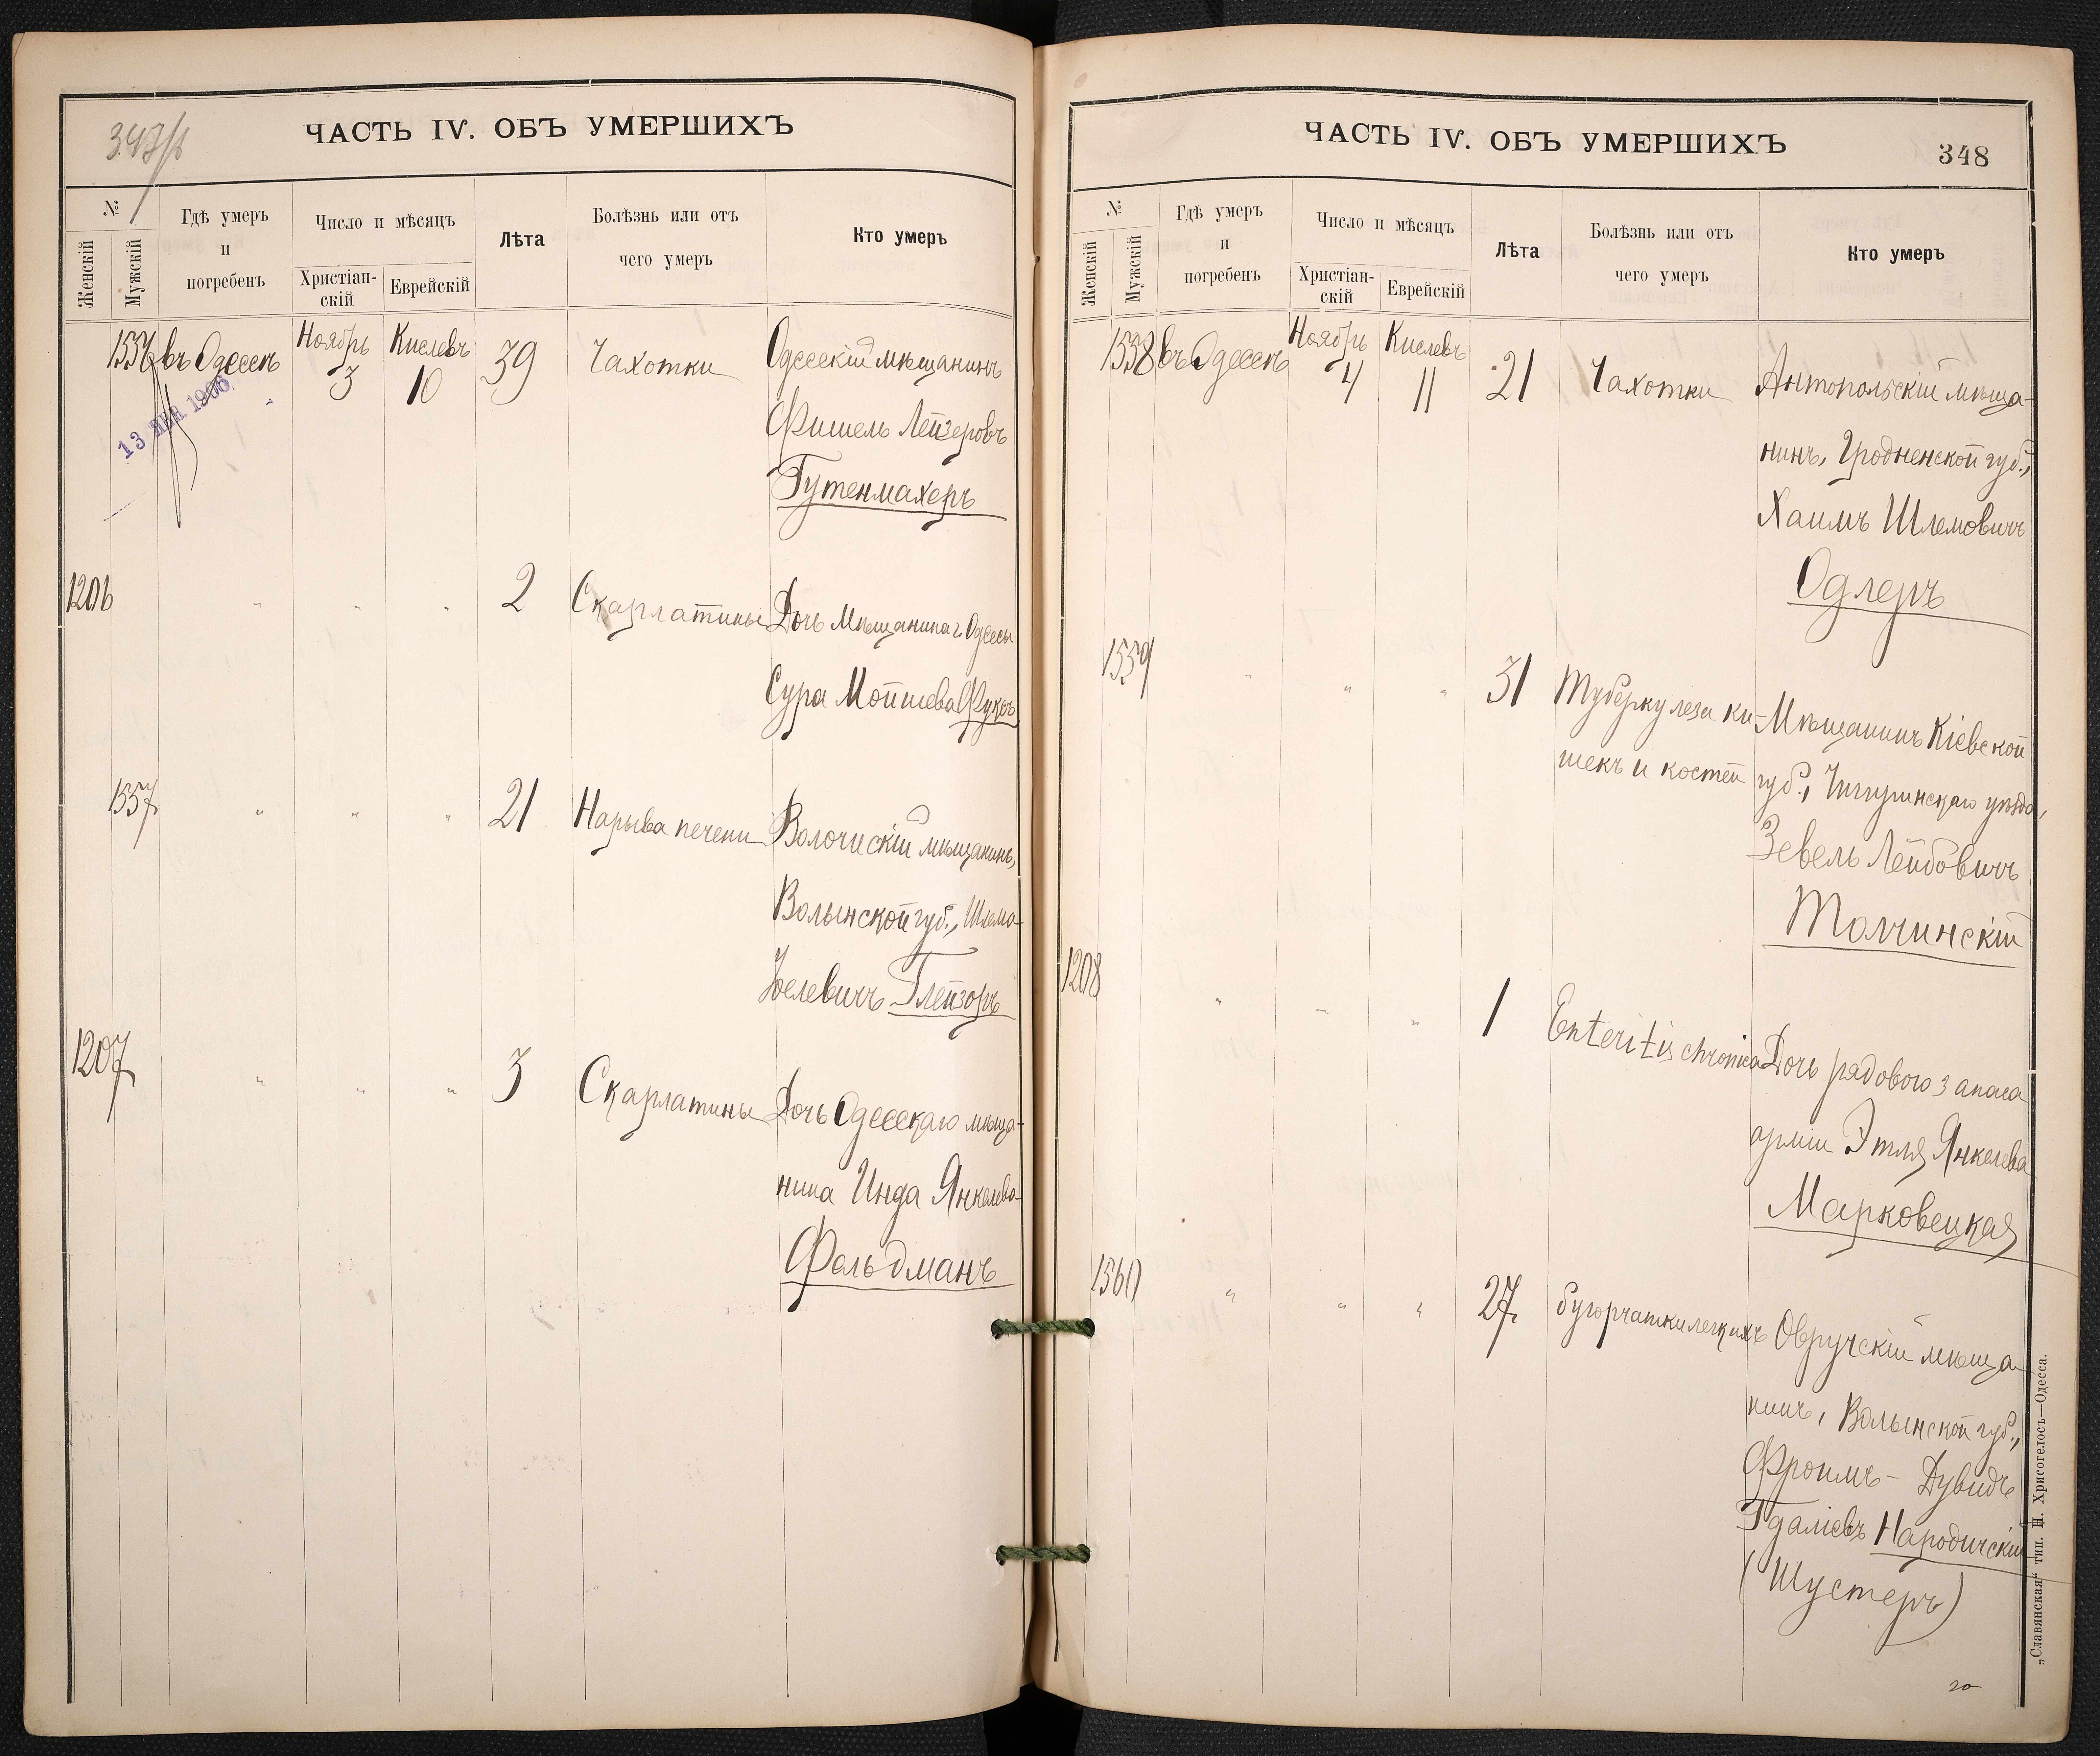 ЧАСТЬ IV. ОБЪ УМЕРШИХЪ
№
Женскій
Мужскій
Гдѣ умеръ
и
погребенъ
Число и мѣсяцъ
Христіан-
скій
Еврейскій
Лѣта
Болѣзнь или отъ
чего умеръ
Кто умеръ
1556 въ Одессѣ Ноябрь 3 Кислевъ 10 39 Чахотки Одесскій мѣщанинъ
Фишель Лейзеровъ
Гутенмахеръ
13 ЯНВ 1906
1206 " " " 2 Скарлатины Дочь мѣщанина г. Одессы
Сура Мойшева Фуксъ
1557 " " " 21 Нарыва печени Волочискій мѣщанинъ,
Волынской губ., Шлема
Іоелевичъ Глейзеръ
1207 " " " 3 Скарлатины Дочь Одесскаго мѣща-
нина Инда Янкелева
Фельдманъ
ЧАСТЬ IV. ОБЪ УМЕРШИХЪ
348
№
Женскій
Мужскій
Гдѣ умеръ
и
погребенъ
Число и мѣсяцъ
Христіан-
скій
Еврейскій
Лѣта
Болѣзнь или отъ
чего умеръ
Кто умеръ
1558 въ Одессѣ Ноябрь 4 Кислевъ 11 21 Чахотки Антопольскій мѣща-
нинъ, Гродненской губ.,
Хаимъ Шлемовичъ
Одлеръ
1559 " " " 31 Туберкулеза ки- Мѣщанинъ Кіевской
шекъ и костей губ., Чигиринскаго уѣзда,
Зевель Лейбовичъ
Толчинскій
1208 " " " 1 Enteritis chronica Дочь рядового запаса
арміи Этля Янкелева
Марковецкая
1560 " " " 27 бугорчатки легкихъ Овручскій мѣща-
нинъ, Волынской губ.,
Фроимъ-Дувидъ
Гдаліевъ Народичскій
(Шустеръ)
„Славянская“ тип. Н. Хрисогелосъ—Одесса.